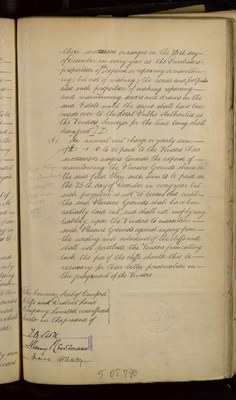 their successors or assigns on the 25th day
of December in every year as the Purchasers
proportion of Expense in repairing or maintain-
ing (but not of making) the roads and footpaths
and such proportion of making repairing
and maintaining sewers and drains in the
said Estate until the same shall have been
made over to the Local Public Authorities as
the Vendors Surveyor for the time being shall
think fit
(4) An annual rent charge or yearly sum
of £ to be paid to the Vendors their
successors or assigns towards the expense of
maintaining the Pleasure Grounds shewn on
the said Plan. Such sum to be paid on
the 25th day of December in every year but
such payment is not to become due until
the said Pleasure Grounds shall have been
actually laid out, and shall not imply any
liability upon the Vendors to maintain
such Pleasure Grounds against injury from
the washing and inbreak of the cliffs and
shall not preclude the Vendors from cutting
back the face of the cliffs should this be
necessary for their better preservation in
the judgment of the Vendors
The Common Seal of Canford
Cliffs and District Land
Company Limited was affixed
hereto in the presence of